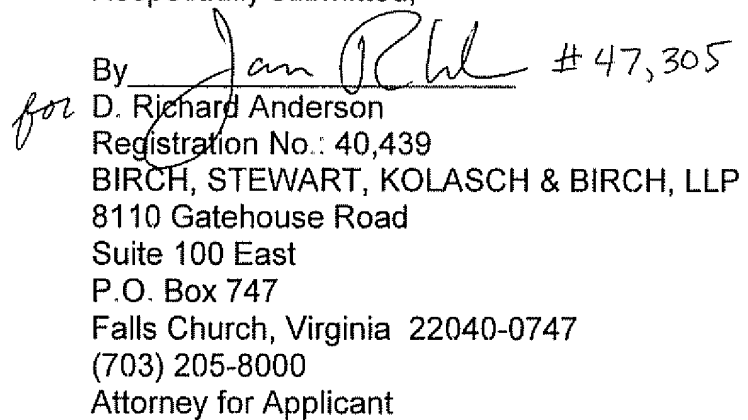 Respectfully submitted,
By Jan R # 47,305
for D. Richard Anderson
Registration No.: 40,439
BIRCH, STEWART, KOLASCH & BIRCH, LLP
8110 Gatehouse Road
Suite 100 East
P.O. Box 747
Falls Church, Virginia 22040-0747
(703) 205-8000
Attorney for Applicant